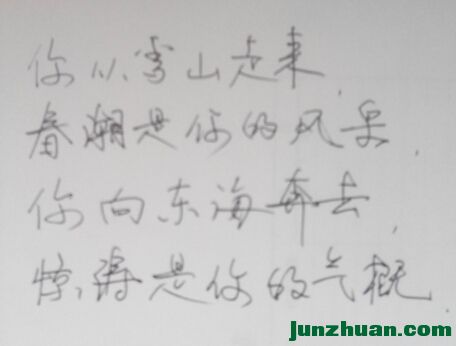 你从雪山走来,
春潮是你的风采.
你向东海奔去,
惊涛是你的气概.
junzhuan.com